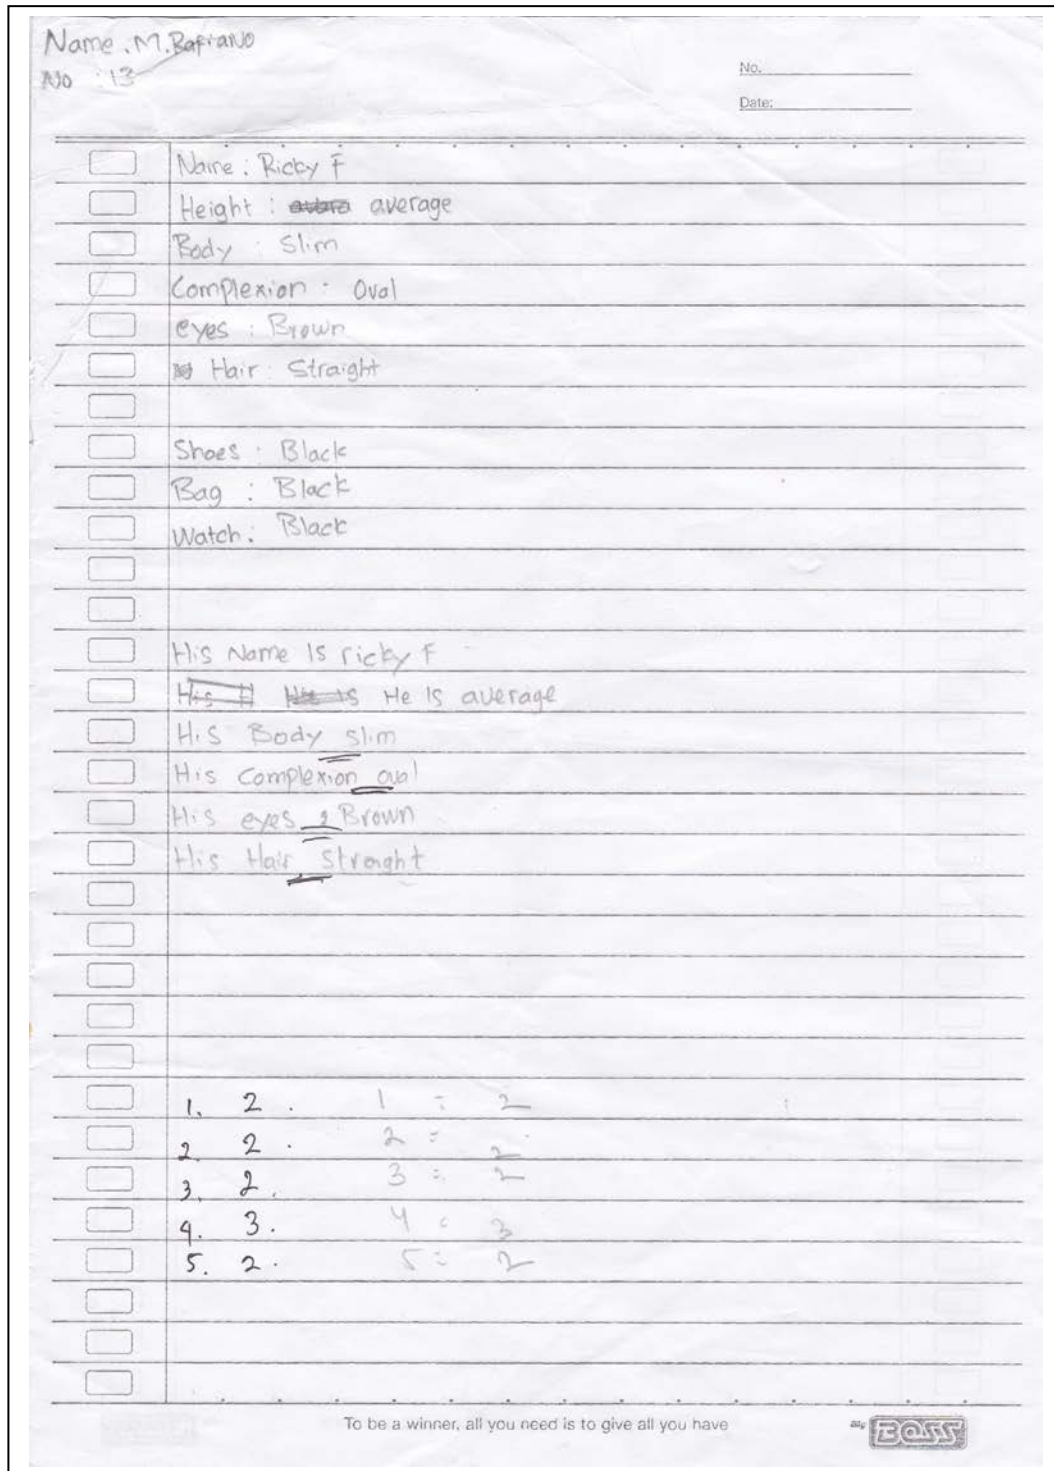 Name . M. Bafiano
No : 13
No.
Date:
Name : Ricky F
Height : average
Body : Slim
Complexion : Oval
eyes : Brown
Hair : Straight
Shoes : Black
Bag : Black
Watch : Black
His Name Is ricky F
He Is average
His Body slim
His Complexion oval
His eyes Brown
His Hair Straight
1. 2 . 1 : 2
2. 2 . 2 : 2
3. 2 . 3 : 2
4. 3 . 4 : 3
5. 2 . 5 : 2
To be a winner, all you need is to give all you have
BOSS